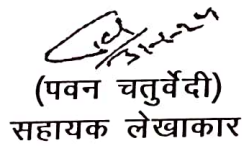 (पवन चतुर्वेदी)
सहायक लेखाकार